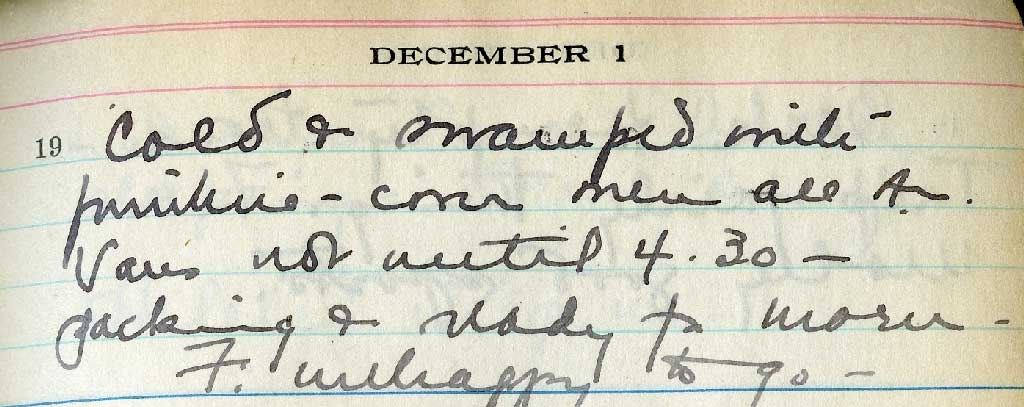 DECEMBER 1
19 Cold & swamped with
furniture - cover men all the.
Vans not until 4.30 -
packing & ready to move -
F. unhappy to go -